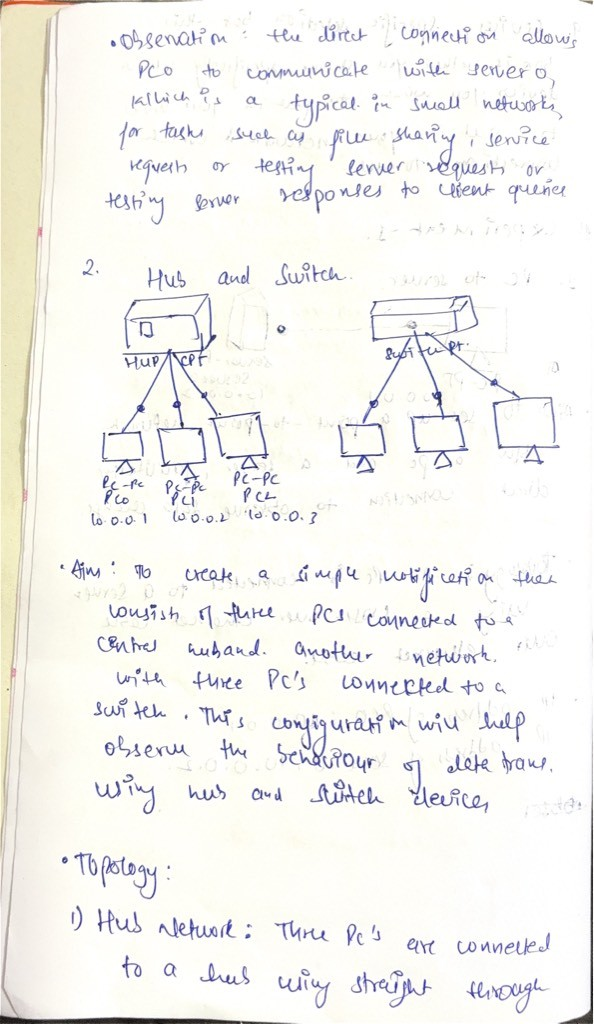 • Observation : the direct connection allows
PC0 to communicate with server 0,
which is a typical in small networks,
for tasks such as file sharing, service
requests or testing server requests or
testing server responses to client queries
2. Hub and Switch.
HUP CPT
Switch Pt.
PC-PC PC-PC PC-PC
PC0 PC1 PC2
10.0.0.1 10.0.0.2 10.0.0.3
• Aim : To create a simple notification that
consist of three PCs connected to a
central huband. another network.
with three PC's connected to a
switch. This configuration will help
observe the behaviour of data trans.
using hub and switch devices,
• Topology :
1) Hub Network : Three PC's are connected
to a hub using straight through